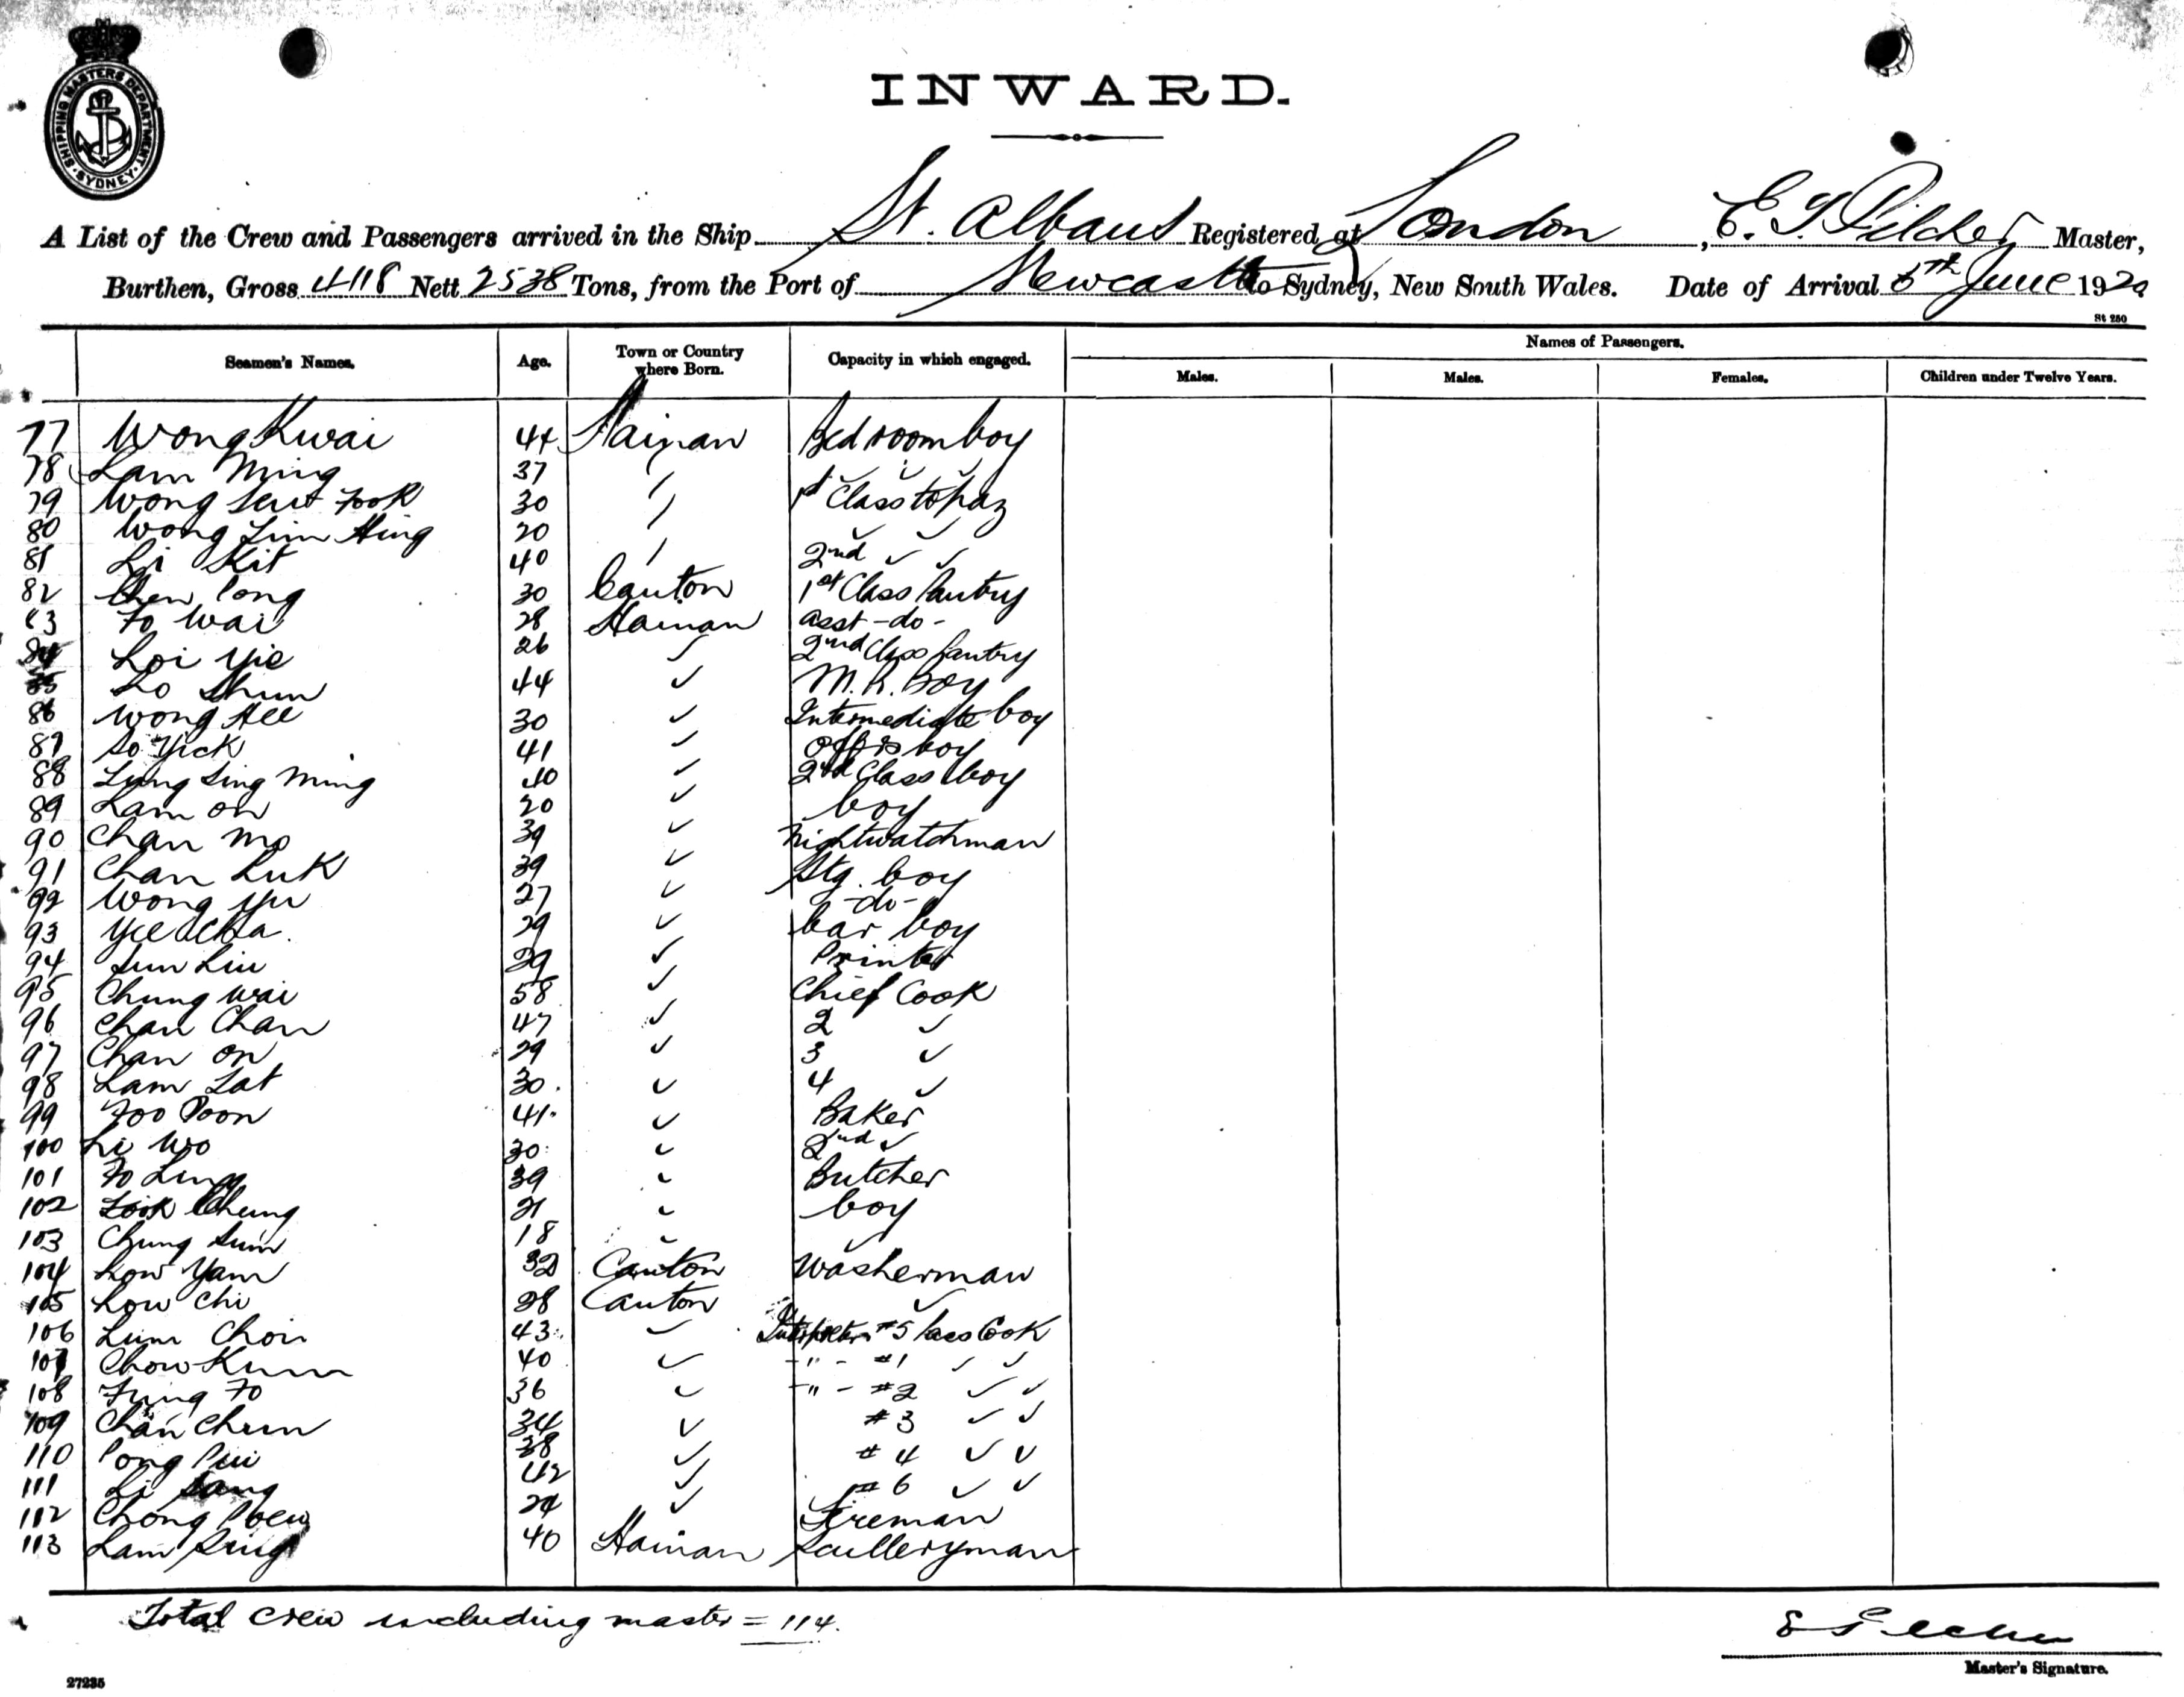 SHIPPING MASTERS DEPARTMENT
SYDNEY
INWARD.
A List of the Crew and Passengers arrived in the Ship St. Albans Registered at London, E. T. Pilcher Master,
Burthen, Gross 4118 Nett 2538 Tons, from the Port of Newcastle to Sydney, New South Wales. Date of Arrival 5th June 1920
St 250
Seamen's Names. Age. Town or Country where Born. Capacity in which engaged. Names of Passengers.
Males. Males. Females. Children under Twelve Years.
77 Wong Kwai 44 Hainan Bedroom boy
78 Lam Ming 37 " ✓ ✓
79 Wong Seut Fook 30 " 1st Class topaz
80 Wong Lim Hing 20 " ✓ ✓
81 Li Kit 40 " 2nd ✓ ✓
82 Chen Pong 30 Canton 1st Class Pantry
83 Fo Wai 28 Hainan asst -do-
84 Loi Yie 26 ✓ 2nd Class Pantry
85 Lo Shun 44 ✓ M.R. Boy
86 Wong Hee 30 ✓ Intermediate boy
87 So Yick 41 ✓ boy
88 Lung Sing Ming 40 ✓ 2nd Class boy
89 Lam on 20 ✓ boy
90 Chan Mo 39 ✓ Nightwatchman
91 Chan Luk 39 ✓ Stg. boy
92 Wong Yu 27 ✓ -do-
93 Yee 29 ✓ bar boy
94 Sun Liu 29 ✓ Printer
95 Chung Wai 58 ✓ Chief Cook
96 Chan Chan 47 ✓ 2 ✓
97 Chan on 29 ✓ 3 ✓
98 Lam Lat 30. ✓ 4 ✓
99 Foo Poon 41. ✓ Baker
100 Li Wo 30 ✓ 2nd ✓
101 Fo Ling 39 ✓ Butcher
102 Look Cheung 21 ✓ boy
103 Chung Sum 18 ✓ ✓
104 Low Yam 32 Canton Washerman
105 Low Chi 28 Canton ✓
106 Lum Choi 43 ✓ #5 Cook
107 Chow Kum 40 ✓ -"- #1 ✓ ✓
108 Fung Fo 36 ✓ -"- #2 ✓ ✓
109 Chan Chun 34 ✓ #3 ✓ ✓
110 Pong Pui 38 ✓ #4 ✓ ✓
111 Li Sang 42 ✓ #6 ✓ ✓
112 Chong 24 ✓ Fireman
113 Lam Sing 40 Hainan Sculleryman
Total Crew including master = 114.
Master's Signature.
27235